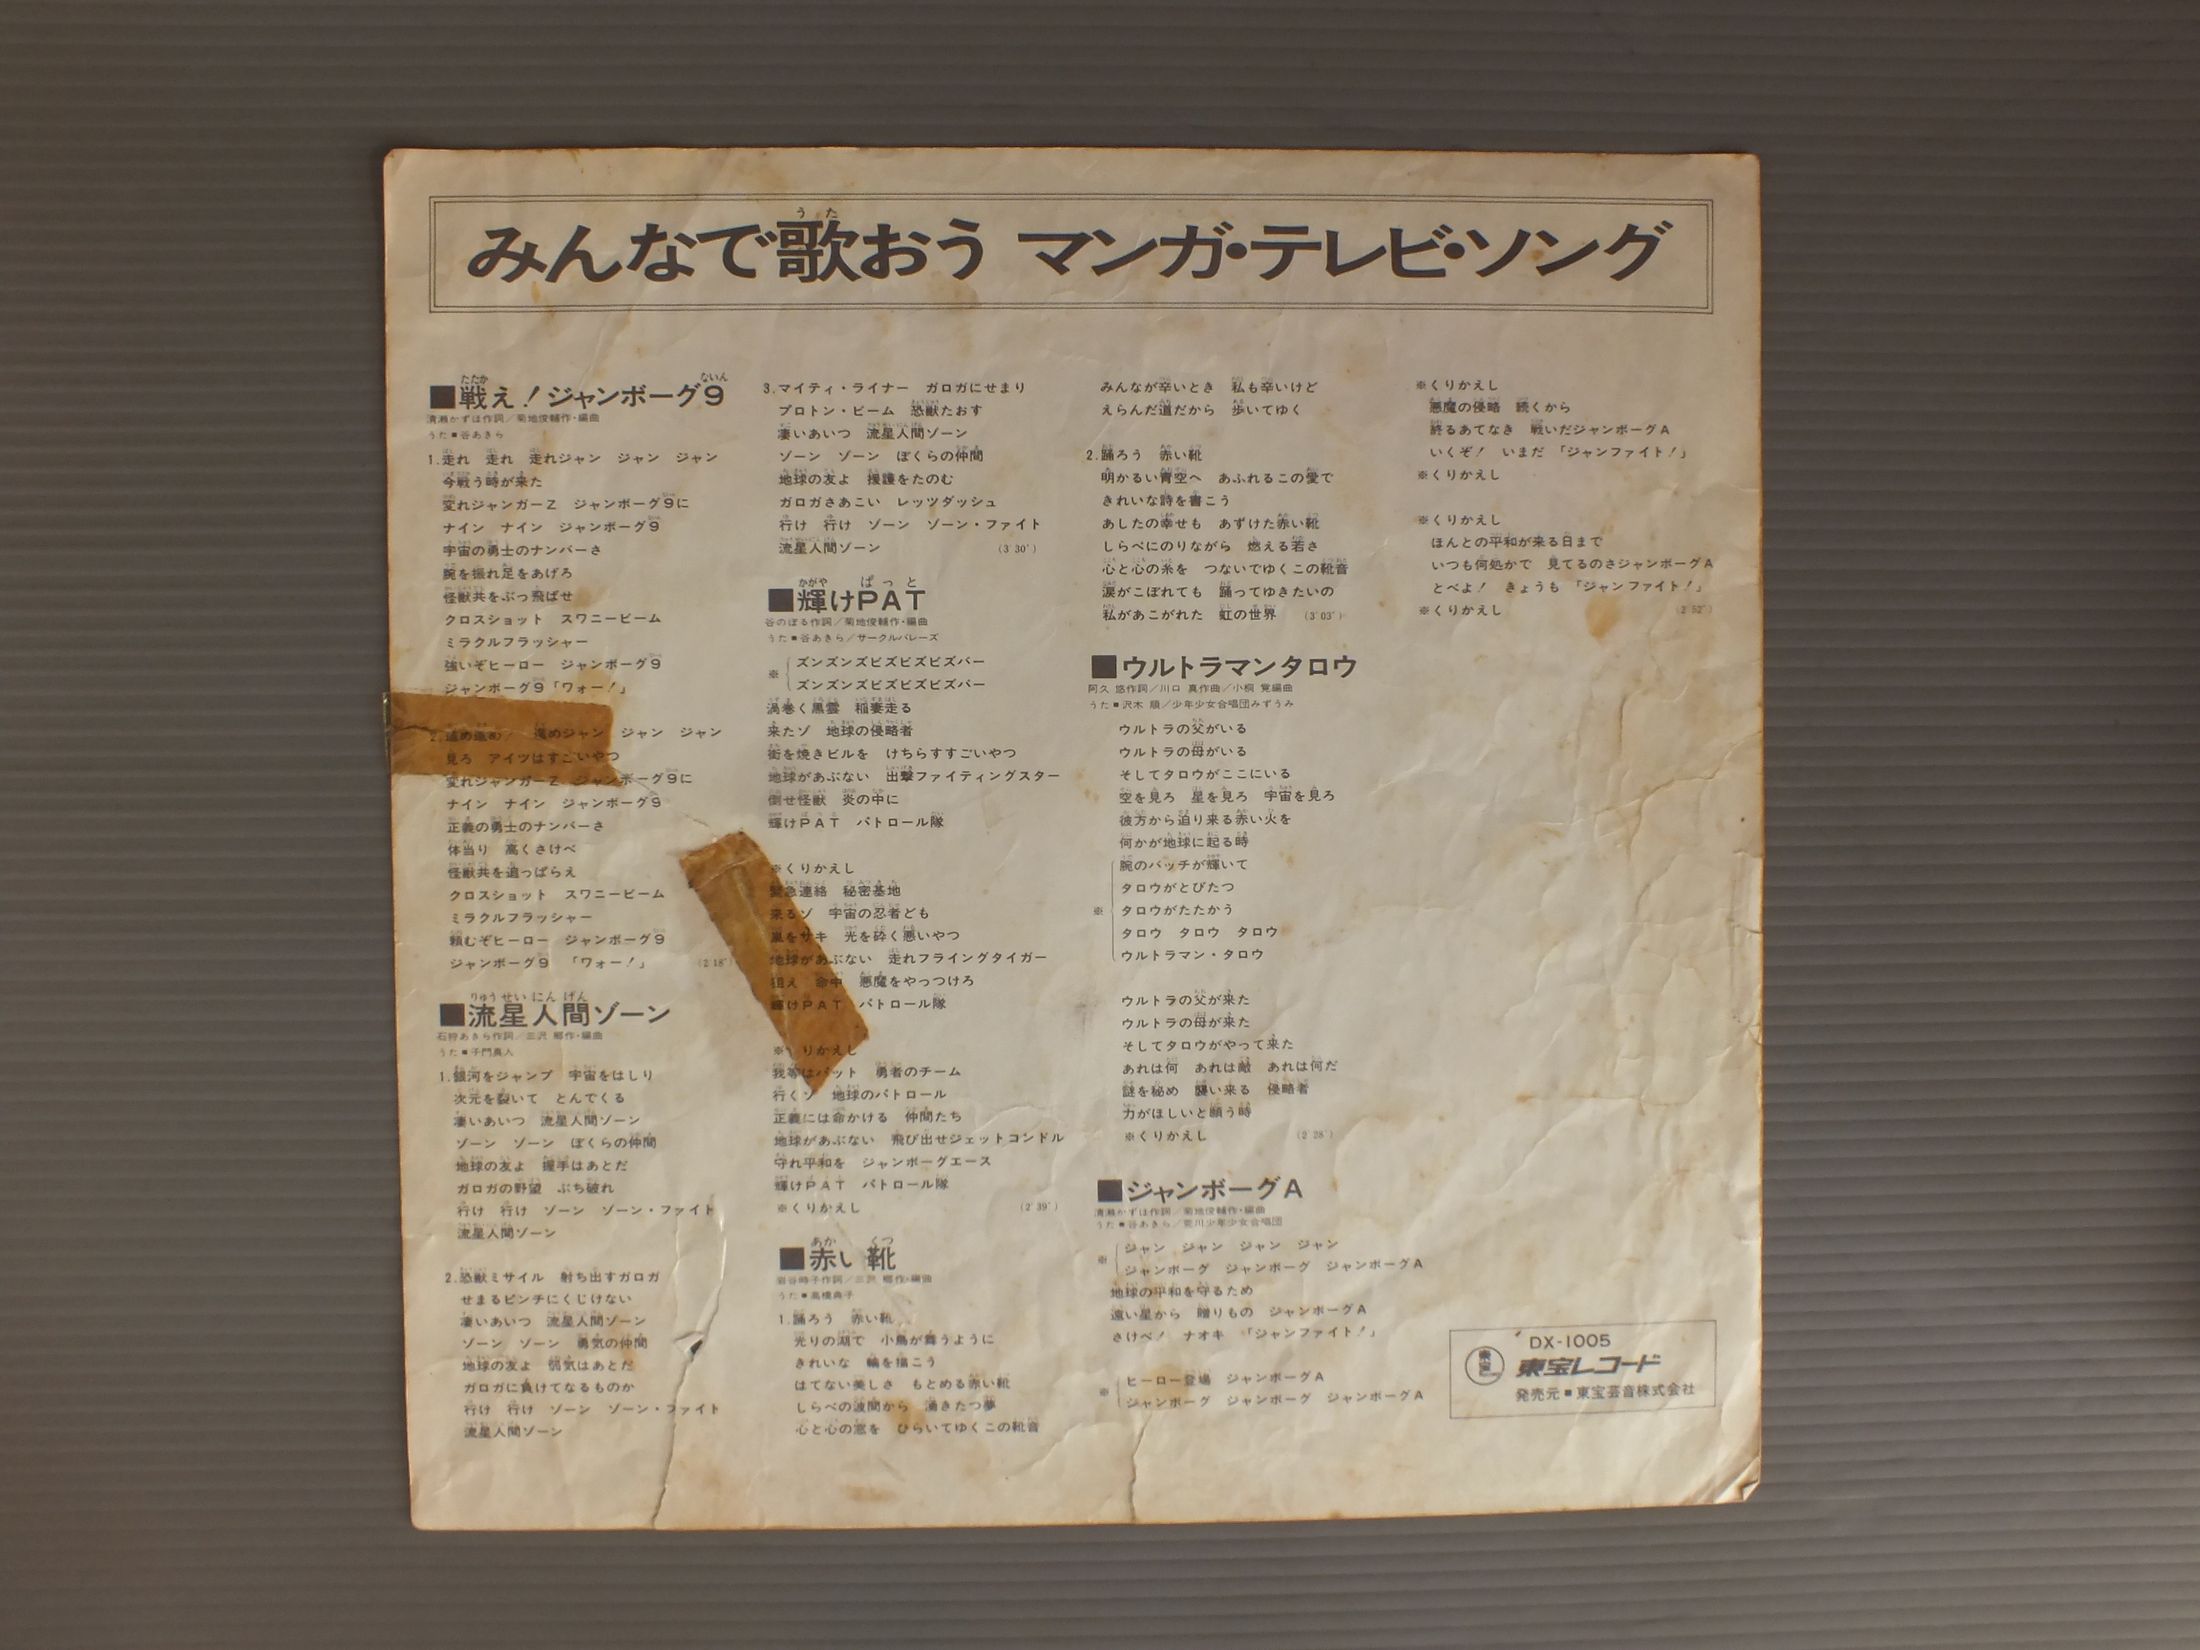 みんなで歌おう マンガ・テレビ・ソング
■戦え！ジャンボーグ9
清瀬かずほ作詞／菊地俊輔作・編曲
うた■谷あきら
1.走れ 走れ 走れジャン ジャン ジャン
今戦う時が来た
変れジャンガーZ ジャンボーグ9に
ナイン ナイン ジャンボーグ9
宇宙の勇士のナンバーさ
腕を振れ足をあげろ
怪獣共をぶっ飛ばせ
クロスショット スワニービーム
ミラクルフラッシャー
強いぞヒーロー ジャンボーグ9
ジャンボーグ9「ワォー！」
2.進め進め！ 進めジャン ジャン ジャン
見ろ アイツはすごいやつ
変れジャンガーZ ジャンボーグ9に
ナイン ナイン ジャンボーグ9
正義の勇士のナンバーさ
体当り 高くさけべ
怪獣共を追っぱらえ
クロスショット スワニービーム
ミラクルフラッシャー
頼むぞヒーロー ジャンボーグ9
ジャンボーグ9 「ワォー！」 (2'18")
■流星人間ゾーン
石狩あきら作詞／三沢 郷作・編曲
うた■子門真人
1.銀河をジャンプ 宇宙をはしり
次元を裂いて とんでくる
凄いあいつ 流星人間ゾーン
ゾーン ゾーン ぼくらの仲間
地球の友よ 握手はあとだ
ガロガの野望 ぶち破れ
行け 行け ゾーン ゾーン・ファイト
流星人間ゾーン
2.恐獣ミサイル 射ち出すガロガ
せまるピンチにくじけない
凄いあいつ 流星人間ゾーン
ゾーン ゾーン 勇気の仲間
地球の友よ 弱気はあとだ
ガロガに負けてなるものか
行け 行け ゾーン ゾーン・ファイト
流星人間ゾーン
3.マイティ・ライナー ガロガにせまり
プロトン・ビーム 恐獣たおす
凄いあいつ 流星人間ゾーン
ゾーン ゾーン ぼくらの仲間
地球の友よ 援護をたのむ
ガロガさあこい レッツダッシュ
行け 行け ゾーン ゾーン・ファイト
流星人間ゾーン (3'30")
■輝けPAT
谷のぼる作詞／菊地俊輔作・編曲
うた■谷あきら／サークルバレーズ
※ ズンズンズビズビズビズバー
ズンズンズビズビズビズバー
渦巻く黒雲 稲妻走る
来たゾ 地球の侵略者
街を焼きビルを けちらすすごいやつ
地球があぶない 出撃ファイティングスター
倒せ怪獣 炎の中に
輝けPAT パトロール隊
※くりかえし
緊急連絡 秘密基地
来るゾ 宇宙の忍者ども
嵐をサキ 光を砕く悪いやつ
地球があぶない 走れフライングタイガー
狙え 命中 悪魔をやっつけろ
輝けPAT パトロール隊
※くりかえし
我等はパット 勇者のチーム
行くゾ 地球のパトロール
正義には命かける 仲間たち
地球があぶない 飛び出せジェットコンドル
守れ平和を ジャンボーグエース
輝けPAT パトロール隊
※くりかえし (2'39")
■赤い靴
岩谷時子作詞／三沢 郷作・編曲
うた■高橋典子
1.踊ろう 赤い靴
光りの湖で 小鳥が舞うように
きれいな 輪を描こう
はてない美しさ もとめる赤い靴
しらべの波間から 湧きたつ夢
心と心の窓を ひらいてゆくこの靴音
みんなが辛いとき 私も辛いけど
えらんだ道だから 歩いてゆく
2.踊ろう 赤い靴
明かるい青空へ あふれるこの愛で
きれいな詩を書こう
あしたの幸せも あずけた赤い靴
しらべにのりながら 燃える若さ
心と心の糸を つないでゆくこの靴音
涙がこぼれても 踊ってゆきたいの
私があこがれた 虹の世界 (3'03")
■ウルトラマンタロウ
阿久 悠作詞／川口 真作曲／小桐 覚編曲
うた■沢木 順／少年少女合唱団みずうみ
ウルトラの父がいる
ウルトラの母がいる
そしてタロウがここにいる
空を見ろ 星を見ろ 宇宙を見ろ
彼方から迫り来る赤い火を
何かが地球に起る時
腕のバッチが輝いて
タロウがとびたつ
※ タロウがたたかう
タロウ タロウ タロウ
ウルトラマン・タロウ
ウルトラの父が来た
ウルトラの母が来た
そしてタロウがやって来た
あれは何 あれは敵 あれは何だ
謎を秘め 襲い来る 侵略者
力がほしいと願う時
※くりかえし (2'28")
■ジャンボーグA
清瀬かずほ作詞／菊地俊輔作・編曲
うた■谷あきら／荒川少年少女合唱団
※ ジャン ジャン ジャン ジャン
ジャンボーグ ジャンボーグ ジャンボーグA
地球の平和を守るため
遠い星から 贈りもの ジャンボーグA
さけべ！ ナオキ 「ジャンファイト！」
※ ヒーロー登場 ジャンボーグA
ジャンボーグ ジャンボーグ ジャンボーグA
※くりかえし
悪魔の侵略 続くから
終るあてなき 戦いだジャンボーグA
いくぞ！ いまだ 「ジャンファイト！」
※くりかえし
※くりかえし
ほんとの平和が来る日まで
いつも何処かで 見てるのさジャンボーグA
とべよ！ きょうも 「ジャンファイト！」
※くりかえし (2'52")
DX-1005
東宝レコード
発売元■東宝芸音株式会社